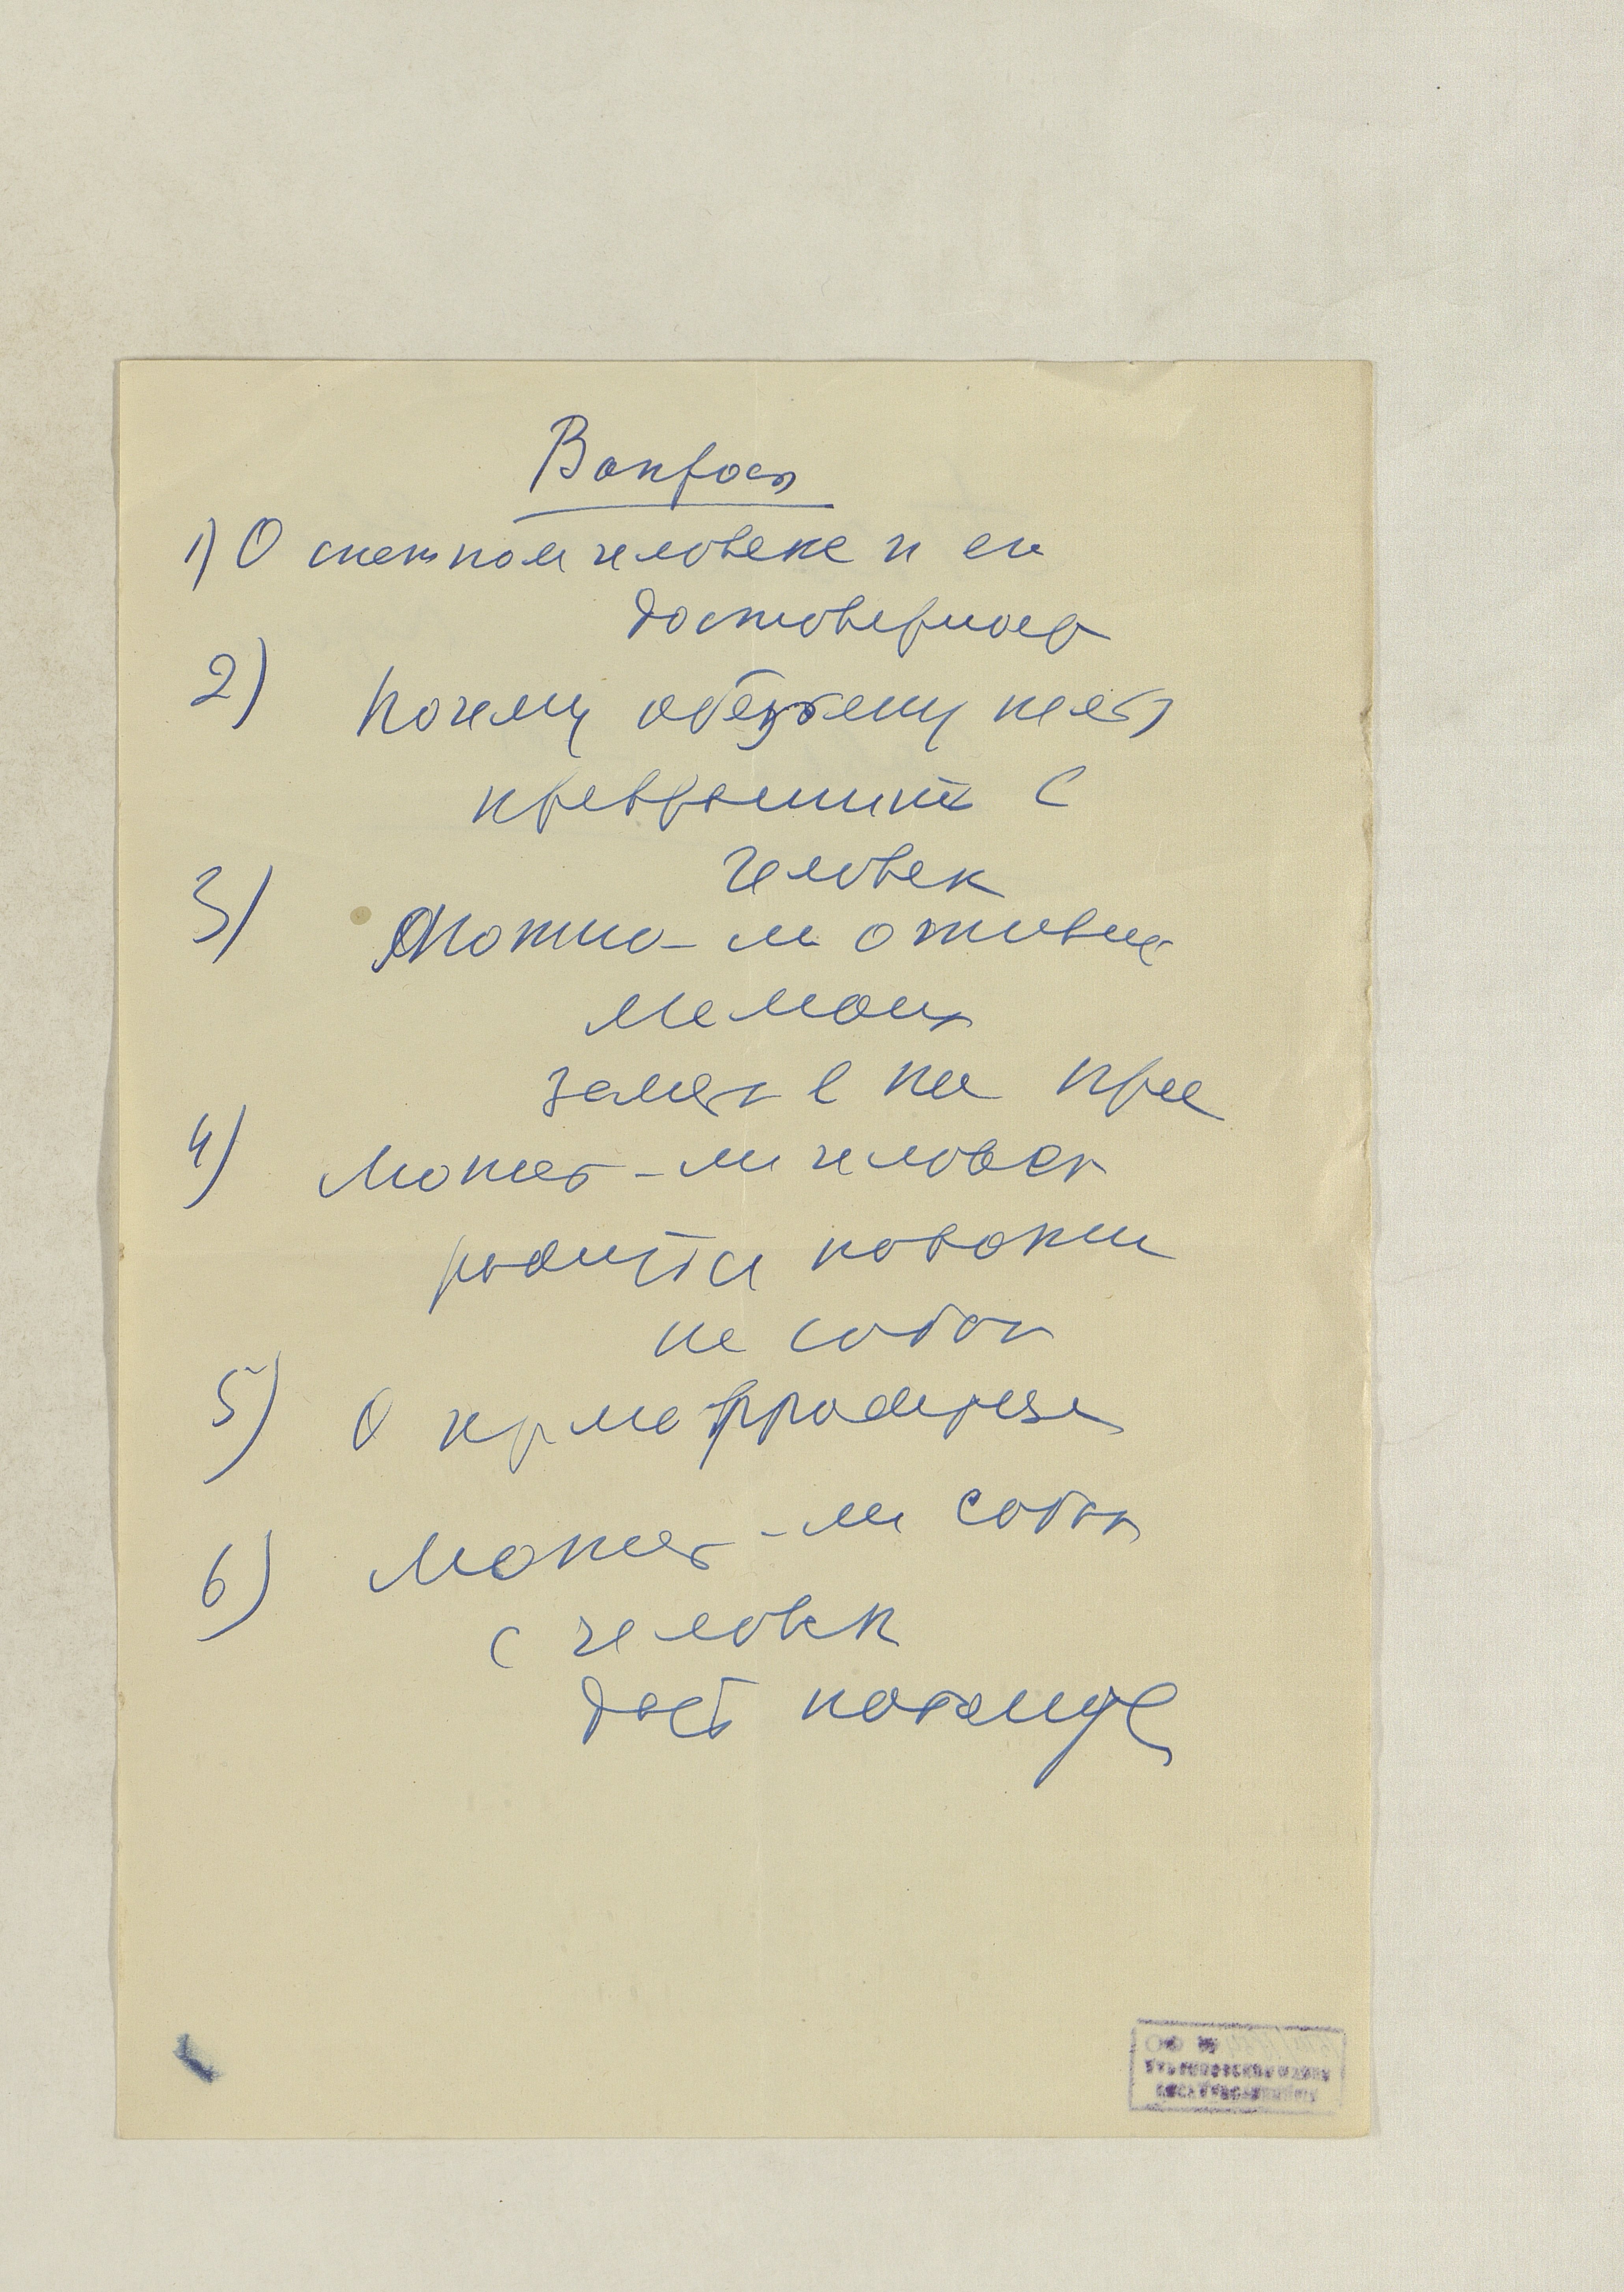 Вопросы
1) О снежном человеке и его
достоверност
2) Почему обезьяну нельз
превратить в
человек
3) Можно-ли оживить
замерз
4) Может-ли человек
родиться похожим
не собак
5) О гермафродитизм
6) Может-ли собак
с человек
дать потомств
ОФ №